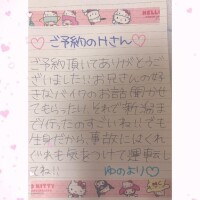 HELL
♡ご予約のHさん♡
ご予約頂いてありがとうご
ざいました!!お兄さんの好き
なバイクのお話聞かせ
てもらったり、それで新潟ま
で行ったのすごいね!!でも
生身だから、事故にはくれ
ぐれも気をつけて運転し
てね!!
ゆのより♡
KITTY